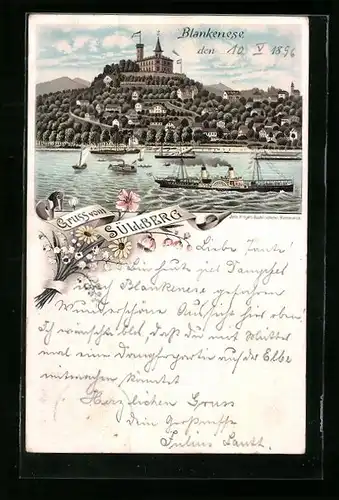 Blankenese,
den 10. V 1896
Gruss vom
SÜLLBERG
Liebe Tante!
Bin heute per Dampfer
nach Blankenese gefahren
Wunderschöne Aussicht hier oben!
Ich wünschte blos, daß du mit Mutter
mal eine Dampferpartie auf der Elbe
mitmachen könntet
Herzlichen Gruss
dein Grossneffe
Julius